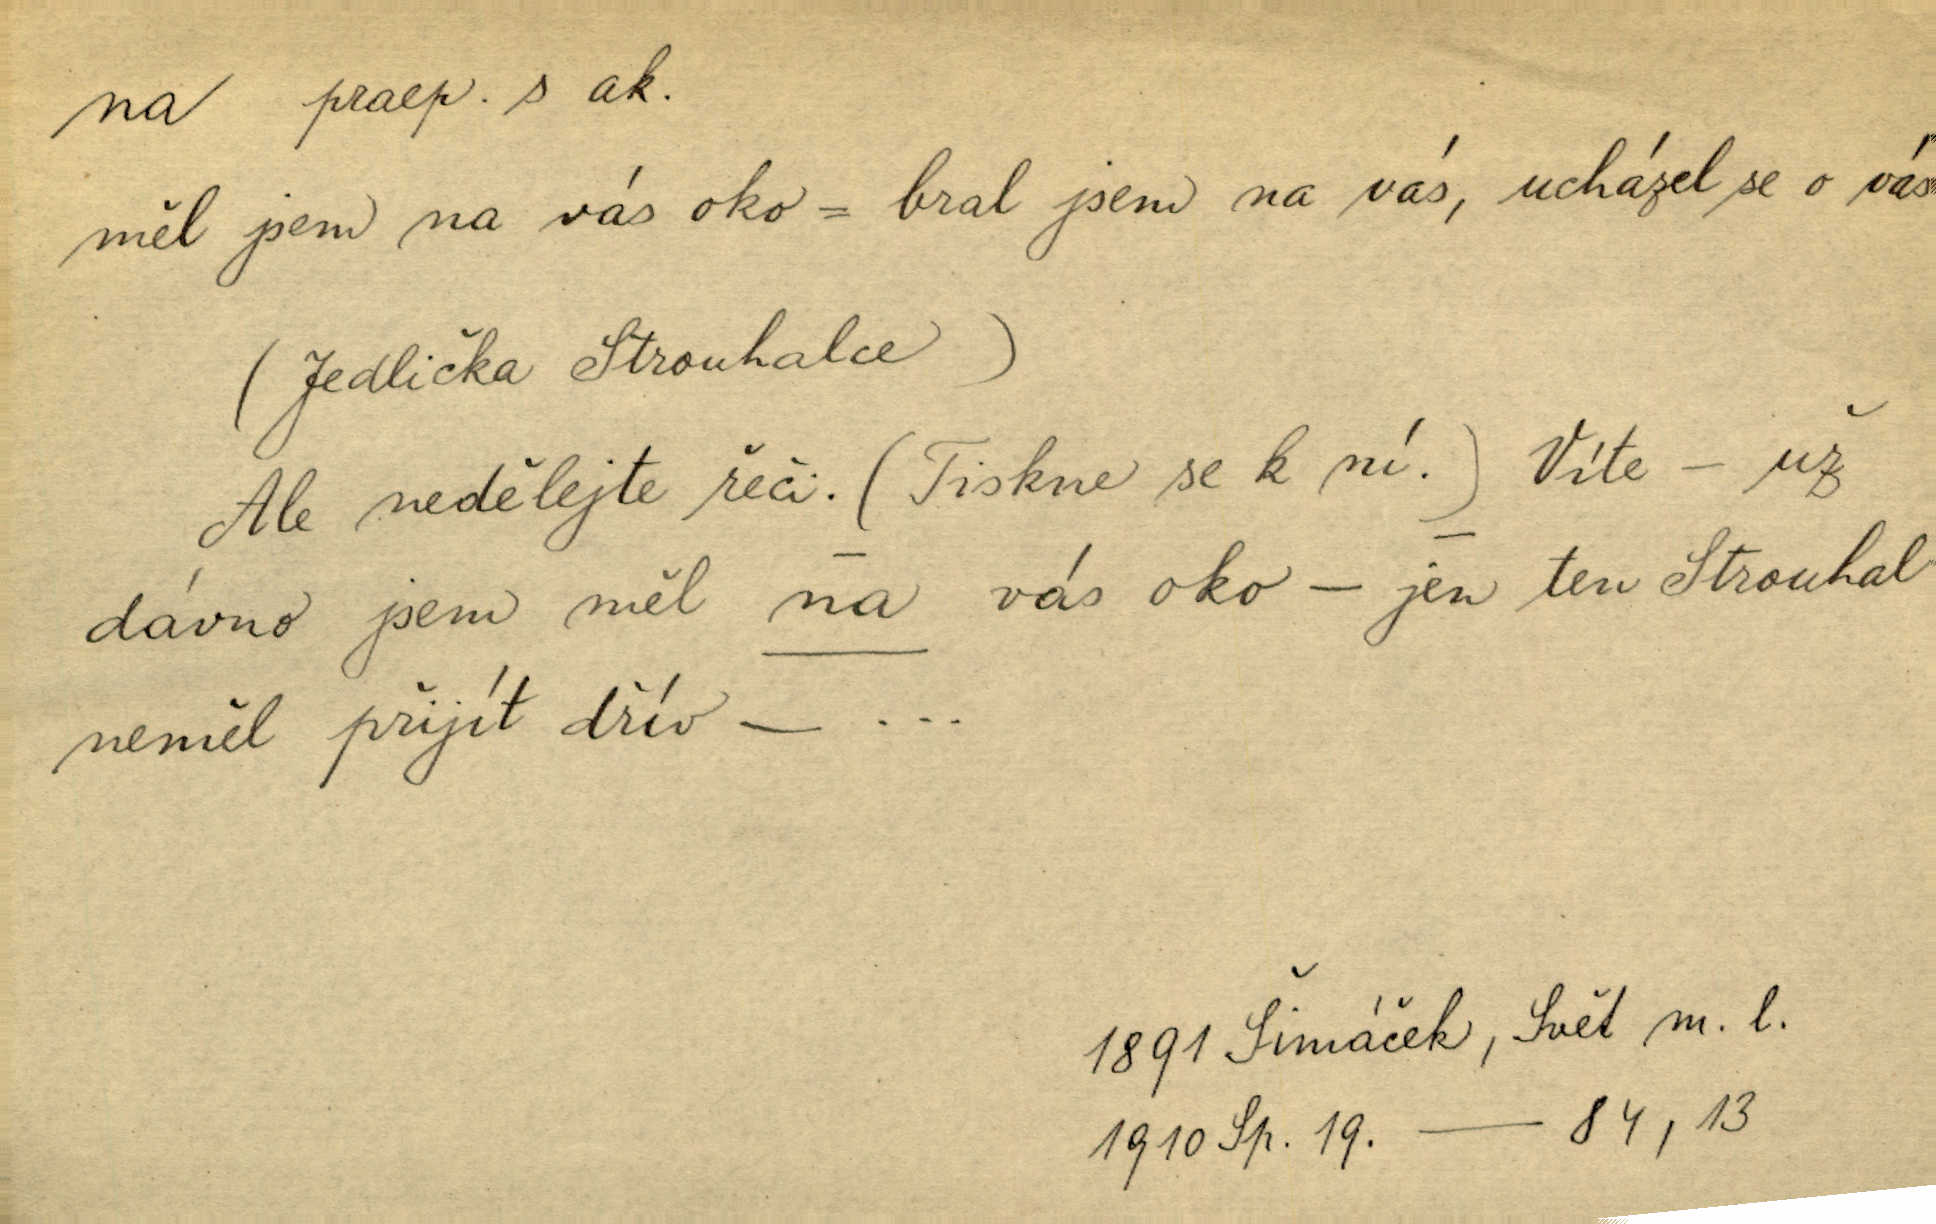 na praep. s ak.
měl jsem na vás oko = bral jsem na vás, ucházel se o vás
(Jedlička Strouhalce)
Ale nedělejte řeči. (Tiskne se k ní.) Víte – už
dávno jsem měl na vás oko – jen ten Strouhal
neměl přijít dřív – ...
1891 Šimáček, Svět m. l.
1910 Sp. 19. — 84, 13